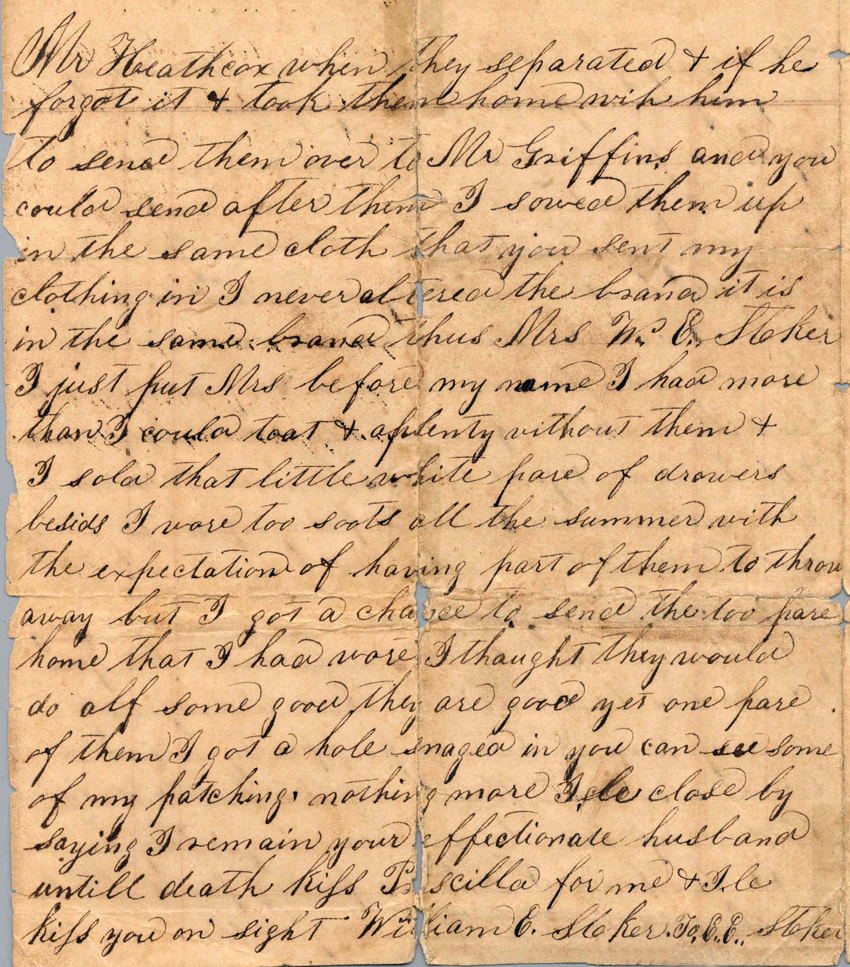 Mr Heathcox when they separated & if he
forgot it & took them home wih him
to send them over to Mr Griffins and you
could send after them I sowed them up
in the same cloth that you sent my
clothing in I never altered the brand it is
in the same brand thus Mrs W. E. Stoker
I just put Mrs before my name I had more
than I could toat & aplenty without them &
I sold that little white pare of drowers
besids I wore too soots all the summer with
the expectation of having part of them to throw
away but I got a chance to send the too pare
home that I had wore I thought they would
do alf some good they are good yet one pare
of them I got a hole snaged in you can see some
of my patching nothing more Ile close by
saying I remain your effectionate husband
untill death kiss Priscilla for me & Ile
kiss you on sight William E. Stoker. To, E, E., Stoker